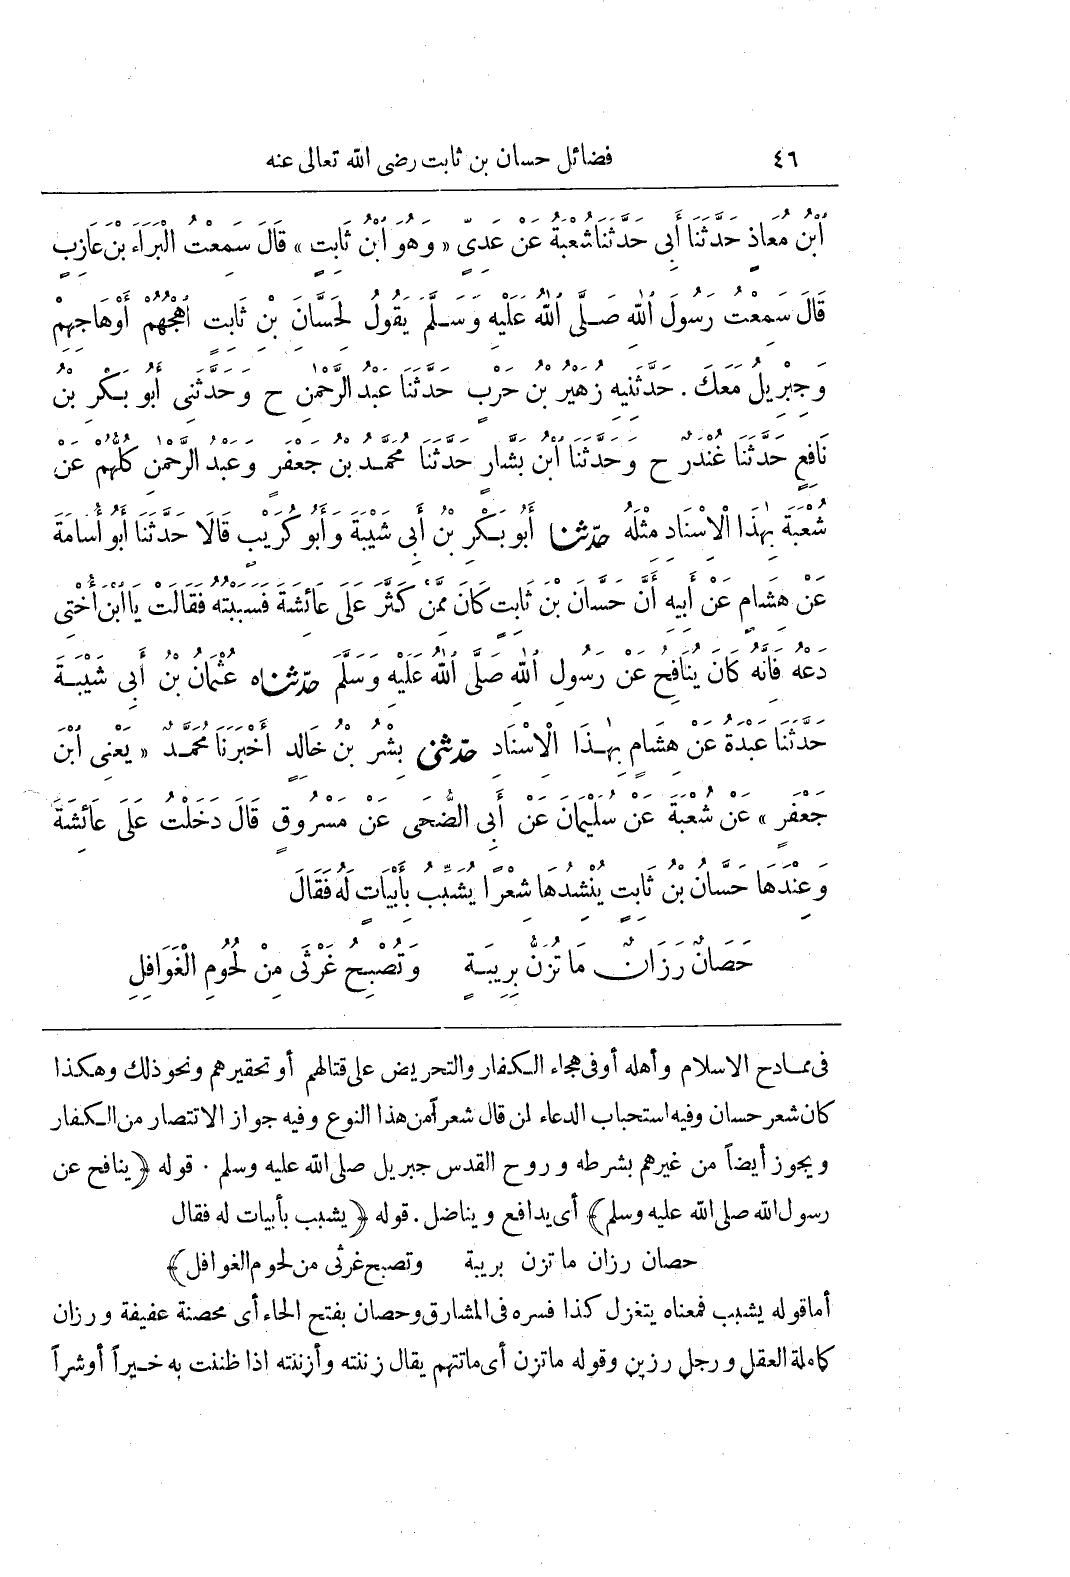 ٤٦ فضائل حسان بن ثابت رضى الله تعالى عنه
ٱبْنُ مُعَاذٍ حَدَّثَنَا أَبِى حَدَّثَنَا شُعْبَةُ عَنْ عَدِىٍّ « وَهُوَ ٱبْنُ ثَابِتٍ » قَالَ سَمِعْتُ الْبَرَاءَ بْنَ عَازِبٍ
قَالَ سَمِعْتُ رَسُولَ ٱللهِ صَلَّى ٱللهُ عَلَيْهِ وَسَلَّمَ يَقُولُ لِحَسَّانَ بْنِ ثَابِتٍ ٱهْجُهُمْ أَوْهَاجِهِمْ
وَجِبْرِيلُ مَعَكَ . حَدَّثَنِيهِ زُهَيْرُ بْنُ حَرْبٍ حَدَّثَنَا عَبْدُ الرَّحْمٰنِ ح وَحَدَّثَنِى أَبُو بَكْرِ بْنُ
نَافِعٍ حَدَّثَنَا غُنْدَرٌ ح وَحَدَّثَنَا ٱبْنُ بَشَّارٍ حَدَّثَنَا مُحَمَّدُ بْنُ جَعْفَرٍ وَعَبْدُ الرَّحْمٰنِ كُلُّهُمْ عَنْ
شُعْبَةَ بِهٰذَا الْاِسْنَادِ مِثْلَهُ حَدَّثَنَا أَبُو بَكْرِ بْنُ أَبِى شَيْبَةَ وَأَبُو كُرَيْبٍ قَالَا حَدَّثَنَا أَبُو أُسَامَةَ
عَنْ هِشَامٍ عَنْ أَبِيهِ أَنَّ حَسَّانَ بْنَ ثَابِتٍ كَانَ مِمَّنْ كَثَّرَ عَلَى عَائِشَةَ فَسَبَبْتُهُ فَقَالَتْ يَا ٱبْنَ أُخْتِى
دَعْهُ فَانَّهُ كَانَ يُنَافِحُ عَنْ رَسُولِ ٱللهِ صَلَّى ٱللهُ عَلَيْهِ وَسَلَّمَ حَدَّثَنَاه عُثْمَانُ بْنُ أَبِى شَيْبَةَ
حَدَّثَنَا عَبْدَةُ عَنْ هِشَامٍ بِهٰذَا الْاِسْنَادِ حَدَّثَنِى بِشْرُ بْنُ خَالِدٍ أَخْبَرَنَا مُحَمَّدٌ « يَعْنِى ٱبْنَ
جَعْفَرٍ » عَنْ شُعْبَةَ عَنْ سُلَيْمَانَ عَنْ أَبِى الضُّحَى عَنْ مَسْرُوقٍ قَالَ دَخَلْتُ عَلَى عَائِشَةَ
وَعِنْدَهَا حَسَّانُ بْنُ ثَابِتٍ يُنْشِدُهَا شِعْرًا يُشَبِّبُ بِأَبْيَاتٍ لَهُ فَقَالَ
حَصَانٌ رَزَانٌ مَا تُزَنُّ بِرِيبَةٍ وَتُصْبِحُ غَرْثَى مِنْ لُحُومِ الْغَوَافِلِ
فى ممادح الاسلام وأهله أوفى هجاء الكفار والتحريض على قتالهم أو تحقيرهم ونحو ذلك وهكذا
كان شعر حسان وفيه استحباب الدعاء لمن قال شعراً من هذا النوع وفيه جواز الانتصار من الكفار
ويجوز أيضاً من غيرهم بشرطه وروح القدس جبريل صلى الله عليه وسلم . قوله ﴿ينافح عن
رسول الله صلى الله عليه وسلم﴾ أى يدافع ويناضل . قوله ﴿يشبب بأبيات له فقال
حصان رزان ما تزن بريبة وتصبح غرثى من لحوم الغوافل﴾
أما قوله يشبب فمعناه يتغزل كذا فسره فى المشارق وحصان بفتح الحاء أى محصنة عفيفة ورزان
كاملة العقل ورجل رزين وقوله ماتزن أى ماتتهم يقال زننته وأزننته اذا ظننت به خيراً أو شراً